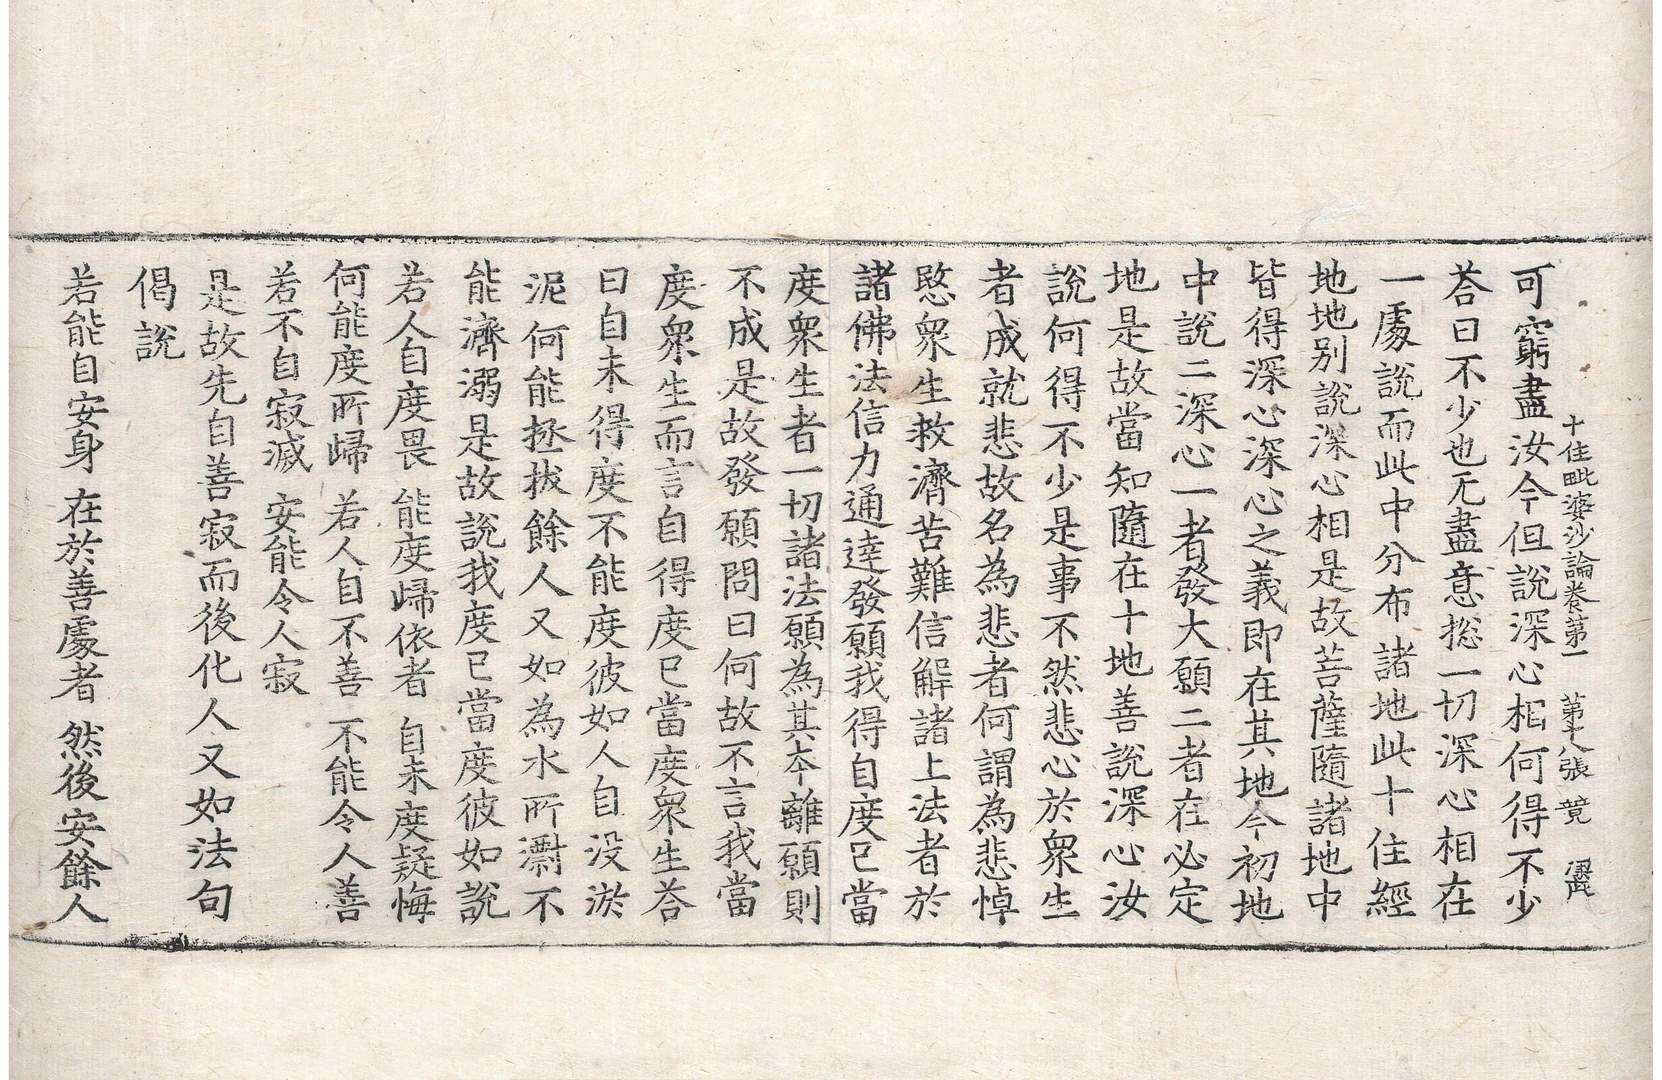 十住毗婆沙論卷第一 第十八張 竟
可窮盡汝今但說深心相何得不少
荅曰不少也无盡意揔一切深心相在
一處說而此中分布諸地此十住經
地地别說深心相是故菩薩隨諸地中
皆得深心深心之義即在其地今初地
中說二深心一者發大願二者在必定
地是故當知隨在十地善說深心汝
說何得不少是事不然悲心於衆生
者成就悲故名為悲者何謂為悲悼
愍衆生救濟苦難信解諸上法者於
諸佛法信力通達發願我得自度已當
度衆生者一切諸法願為其本離願則
不成是故發願問曰何故不言我當
度衆生而言自得度已當度衆生荅
曰自未得度不能度彼如人自没淤
泥何能拯拔餘人又如為水所㵧不
能濟溺是故說我度已當度彼如說
若人自度畏 能度歸依者 自未度疑悔
何能度所歸 若人自不善 不能令人善
若不自寂滅 安能令人寂
是故先自善寂而後化人又如法句
偈說
若能自安身 在於善處者 然後安餘人